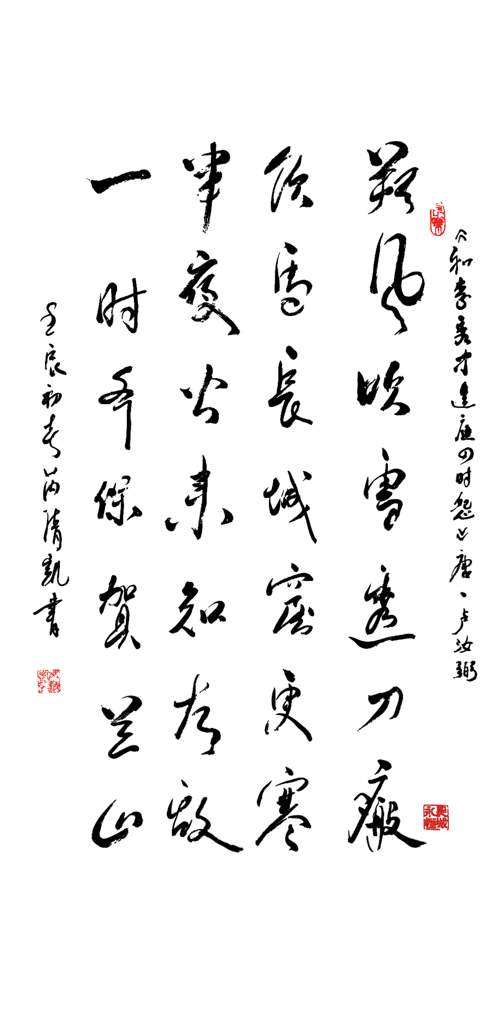 《和李秀才边庭四时怨》唐、卢汝弼
朔风吹雪透刀瘢
饮馬長城窟更寒
半夜火来知有敌
一时齐保賀兰山
壬辰初春芮清凯書